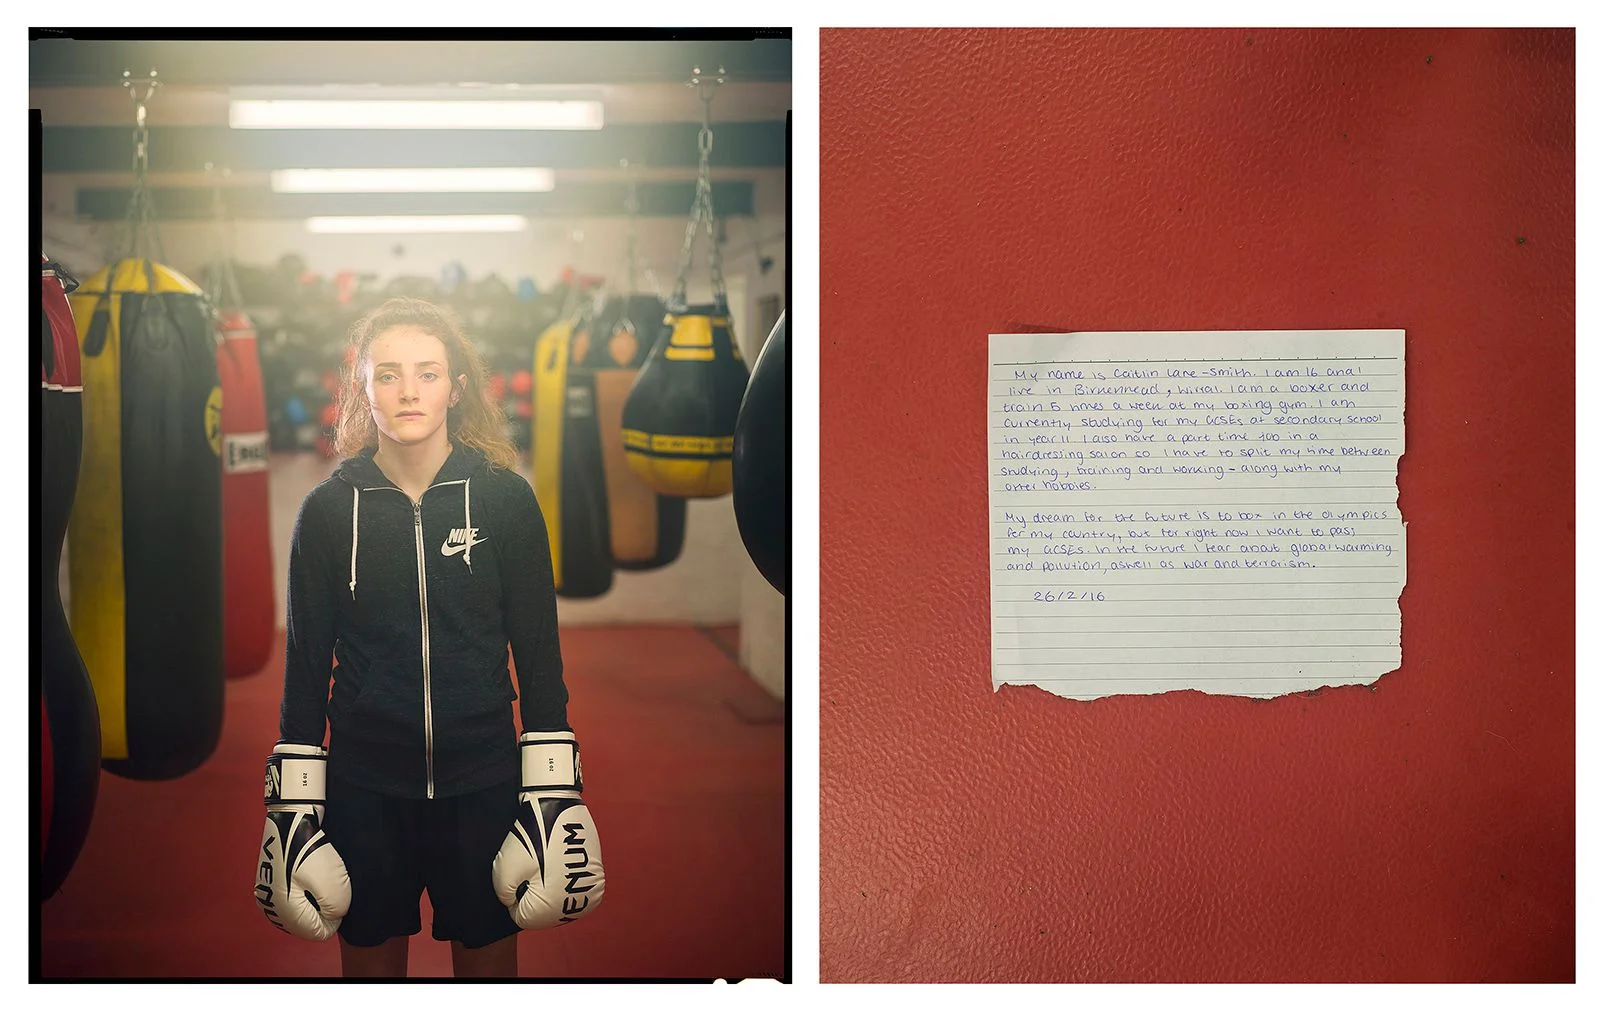 NIKE
16 oz
16 oz
VENUM
VENUM
My name is Caitlin Lane-Smith. I am 16 and I
live in Birkenhead, Wirral. I am a boxer and
train 5 times a week at my boxing gym. I am
currently studying for my GCSEs at secondary school
in year 11. I also have a part time job in a
hairdressing salon so I have to split my time between
studying, training and working - along with my
other hobbies.
My dream for the future is to box in the Olympics
for my country, but for right now I want to pass
my GCSEs. In the future I fear about global warming
and pollution, aswell as war and terrorism.
26/2/16